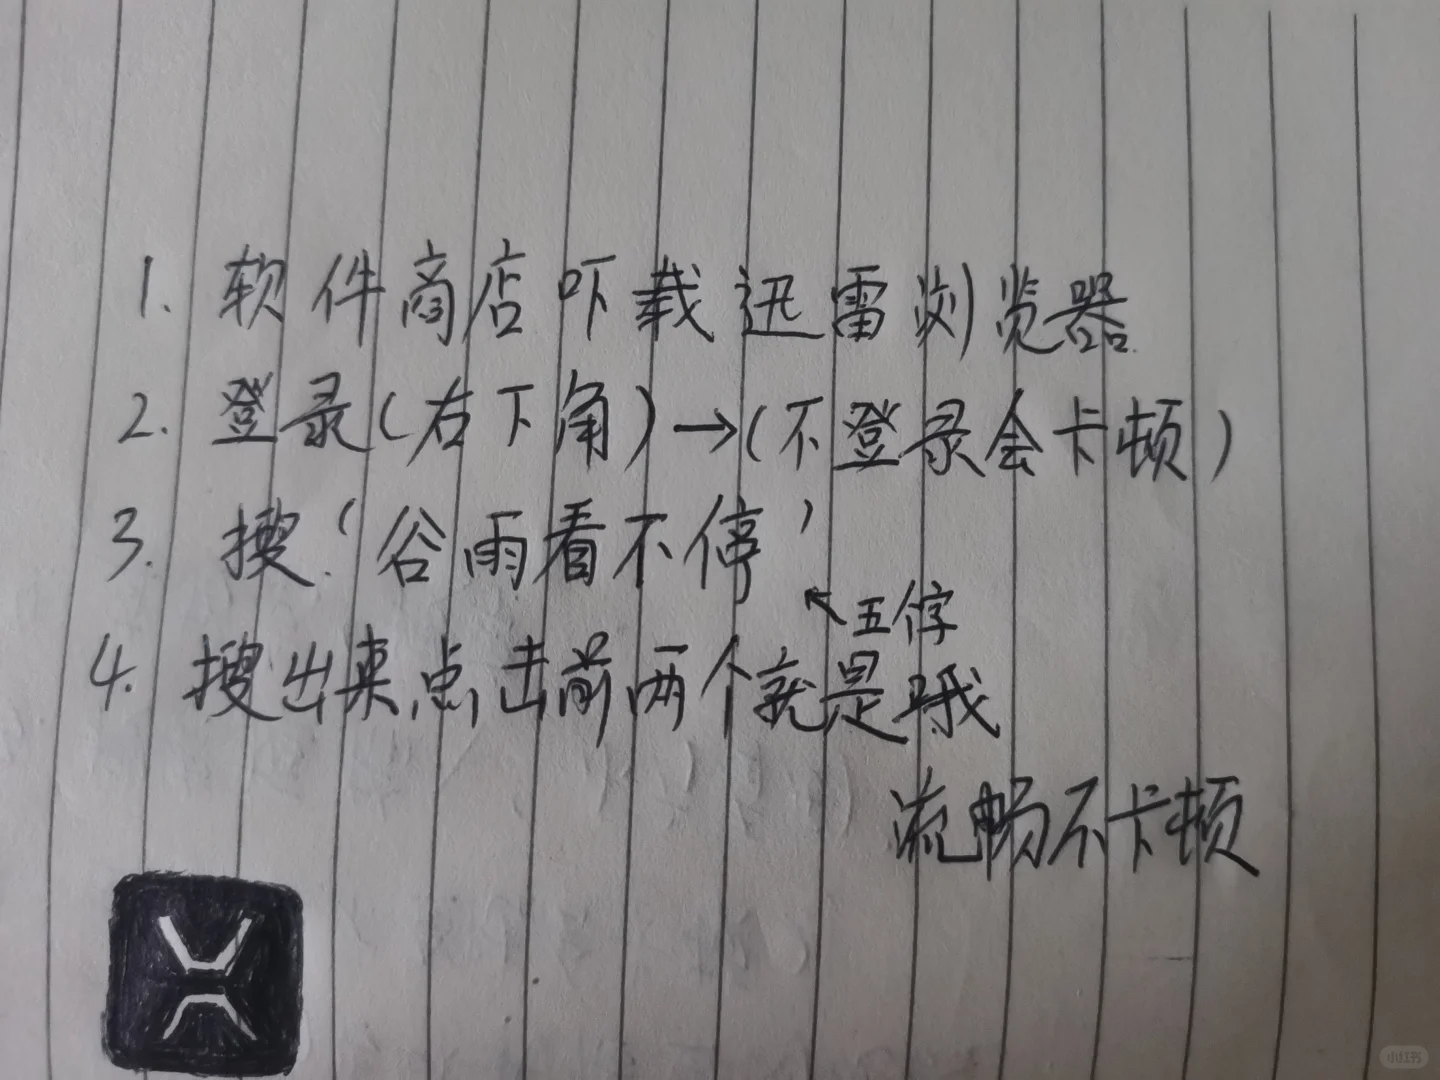 1. 软件商店吓载迅雷浏览器
2. 登录(右下角)→(不登录会卡顿)
3. 搜‘谷雨看不停’
↖五字
4. 搜出来点击前两个就是哦
流畅不卡顿
小红书